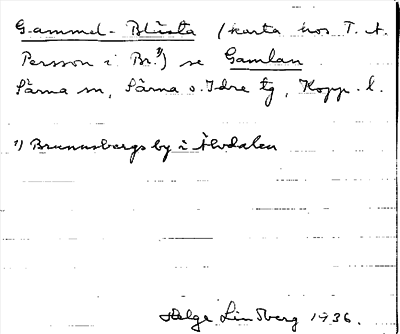 Gammel-Blåsta (karta hos T. A.
Persson i Br.¹⁾) se Gamlan
Särna sn, Särna o. Idre tg, Kopp. l.
¹⁾ Brunnsbergs by i Älvdalen
Helge Lindberg 1936.